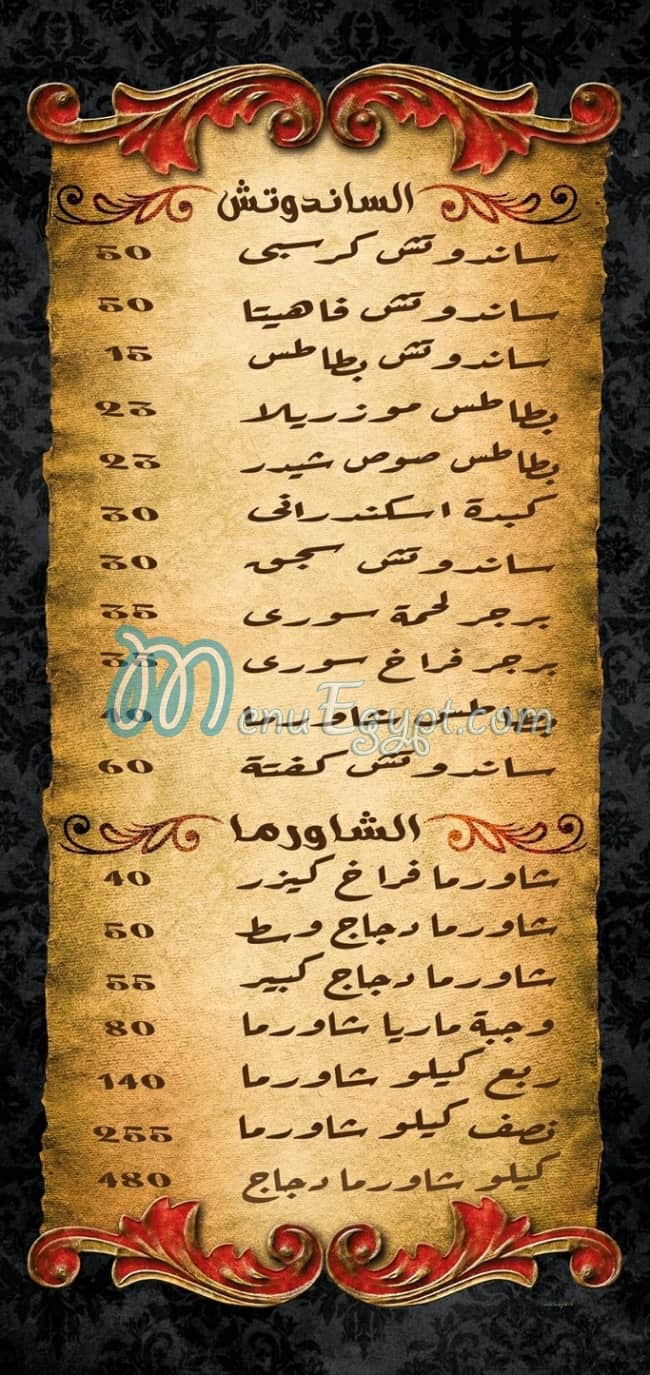 الساندوتش
ساندوتش كرسبى 50
ساندوتش فاهيتا 50
ساندوتش بطاطس 15
بطاطس موزريلا 23
بطاطس صوص شيدر 23
كبدة اسكندرانى 30
ساندوتش سجق 30
برجر لحمة سورى 35
برجر فراخ سورى 35
بطاطس شاورما 40
MenuEgypt.com
ساندوتش كفتة 60
الشاورما
شاورما فراخ كيزر 40
شاورما دجاج وسط 50
شاورما دجاج كبير 55
وجبة ماريا شاورما 80
ربع كيلو شاورما 140
نصف كيلو شاورما 255
كيلو شاورما دجاج 480